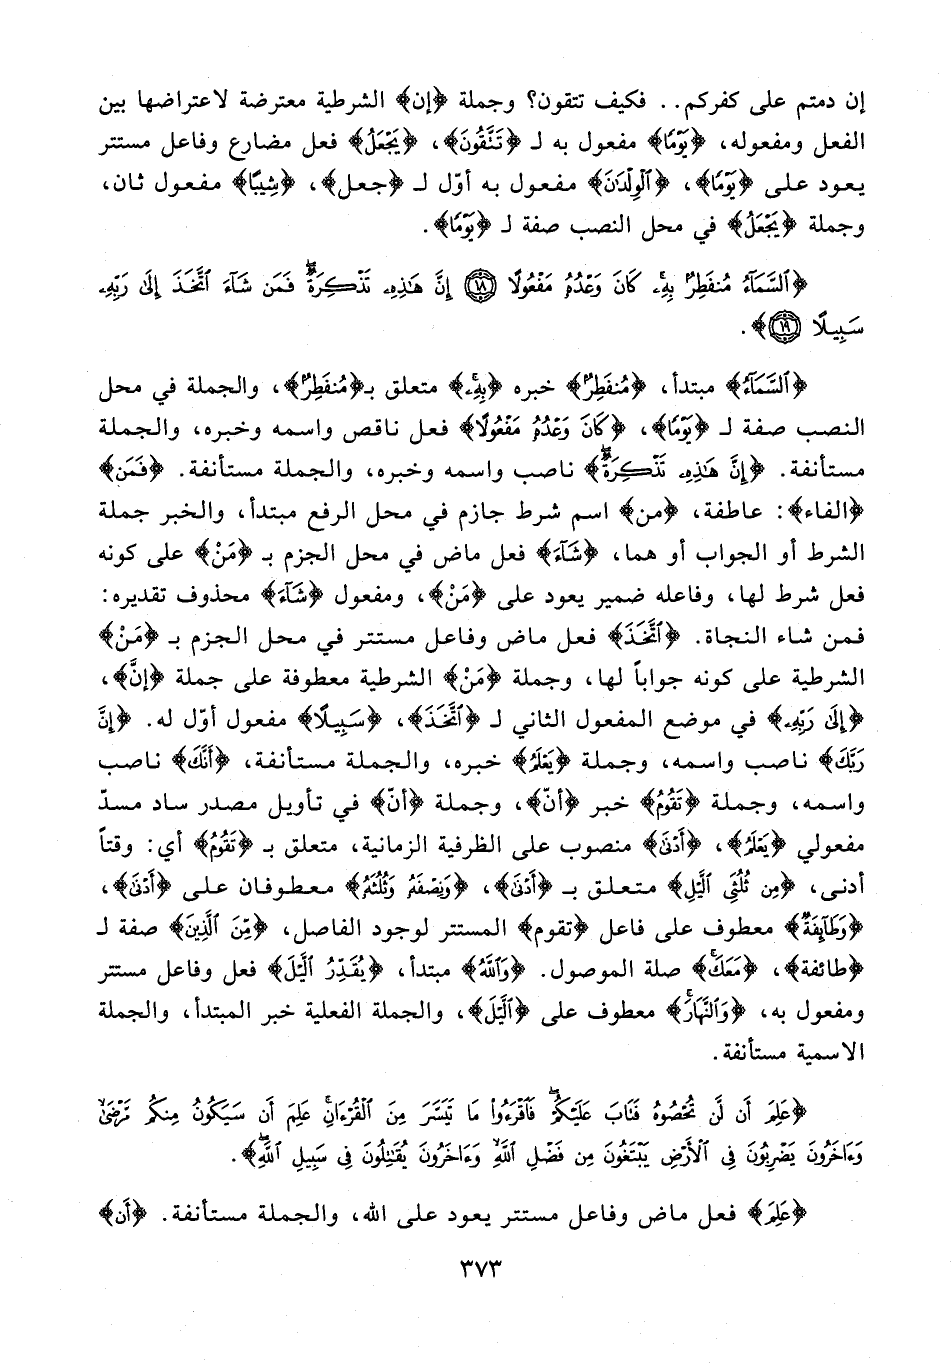 إن دمتم على كفركم.. فكيف تتقون؟ وجملة ﴿إن﴾ الشرطية معترضة لاعتراضها بين
الفعل ومفعوله، ﴿يَوْمًا﴾ مفعول به لـ ﴿تَتَّقُونَ﴾، ﴿يَجْعَلُ﴾ فعل مضارع وفاعل مستتر
يعود على ﴿يَوْمًا﴾، ﴿ٱلْوِلْدَٰنَ﴾ مفعول به أوّل لـ ﴿جعل﴾، ﴿شِيبًا﴾ مفعول ثان،
وجملة ﴿يَجْعَلُ﴾ في محل النصب صفة لـ ﴿يَوْمًا﴾.
﴿ٱلسَّمَآءُ مُنفَطِرٌۢ بِهِۦۚ كَانَ وَعْدُهُۥ مَفْعُولًا ١٨ إِنَّ هَٰذِهِۦ تَذْكِرَةٌۖ فَمَن شَآءَ ٱتَّخَذَ إِلَىٰ رَبِّهِۦ
سَبِيلًا ١٩﴾.
﴿ٱلسَّمَآءُ﴾ مبتدأ، ﴿مُنفَطِرٌۢ﴾ خبره ﴿بِهِۦۚ﴾ متعلق بـ﴿مُنفَطِرٌۢ﴾، والجملة في محل
النصب صفة لـ ﴿يَوْمًا﴾، ﴿كَانَ وَعْدُهُۥ مَفْعُولًا﴾ فعل ناقص واسمه وخبره، والجملة
مستأنفة. ﴿إِنَّ هَٰذِهِۦ تَذْكِرَةٌۖ﴾ ناصب واسمه وخبره، والجملة مستأنفة. ﴿فَمَن﴾
﴿الفاء﴾: عاطفة، ﴿من﴾ اسم شرط جازم في محل الرفع مبتدأ، والخبر جملة
الشرط أو الجواب أو هما، ﴿شَآءَ﴾ فعل ماض في محل الجزم بـ ﴿مَنْ﴾ على كونه
فعل شرط لها، وفاعله ضمير يعود على ﴿مَنْ﴾، ومفعول ﴿شَآءَ﴾ محذوف تقديره:
فمن شاء النجاة. ﴿ٱتَّخَذَ﴾ فعل ماض وفاعل مستتر في محل الجزم بـ ﴿مَنْ﴾
الشرطية على كونه جواباً لها، وجملة ﴿مَنْ﴾ الشرطية معطوفة على جملة ﴿إنَّ﴾،
﴿إِلَىٰ رَبِّهِۦ﴾ في موضع المفعول الثاني لـ ﴿ٱتَّخَذَ﴾، ﴿سَبِيلًا﴾ مفعول أوّل له. ﴿إِنَّ
رَبَّكَ﴾ ناصب واسمه، وجملة ﴿يَعْلَمُ﴾ خبره، والجملة مستأنفة، ﴿أَنَّكَ﴾ ناصب
واسمه، وجملة ﴿تَقُومُ﴾ خبر ﴿أنّ﴾، وجملة ﴿أنّ﴾ في تأويل مصدر ساد مسدّ
مفعولي ﴿يَعْلَمُ﴾، ﴿أَدْنَىٰ﴾ منصوب على الظرفية الزمانية، متعلق بـ ﴿تَقُومُ﴾ أي: وقتاً
أدنى، ﴿مِن ثُلُثَىِ ٱلَّيْلِ﴾ متعلق بـ ﴿أَدْنَىٰ﴾، ﴿وَنِصْفَهُۥ وَثُلُثَهُۥ﴾ معطوفان على ﴿أَدْنَىٰ﴾،
﴿وَطَآئِفَةٌ﴾ معطوف على فاعل ﴿تقوم﴾ المستتر لوجود الفاصل، ﴿مِّنَ ٱلَّذِينَ﴾ صفة لـ
﴿طائفة﴾، ﴿مَعَكَۚ﴾ صلة الموصول. ﴿وَٱللَّهُ﴾ مبتدأ، ﴿يُقَدِّرُ ٱلَّيْلَ﴾ فعل وفاعل مستتر
ومفعول به، ﴿وَٱلنَّهَارَۚ﴾ معطوف على ﴿ٱلَّيْلَ﴾، والجملة الفعلية خبر المبتدأ، والجملة
الاسمية مستأنفة.
﴿عَلِمَ أَن لَّن تُحْصُوهُ فَتَابَ عَلَيْكُمْۖ فَٱقْرَءُوا۟ مَا تَيَسَّرَ مِنَ ٱلْقُرْءَانِۚ عَلِمَ أَن سَيَكُونُ مِنكُم مَّرْضَىٰۙ
وَءَاخَرُونَ يَضْرِبُونَ فِى ٱلْأَرْضِ يَبْتَغُونَ مِن فَضْلِ ٱللَّهِۙ وَءَاخَرُونَ يُقَٰتِلُونَ فِى سَبِيلِ ٱللَّهِۖ﴾.
﴿عَلِمَ﴾ فعل ماض وفاعل مستتر يعود على الله، والجملة مستأنفة. ﴿أَن﴾
٣٧٣